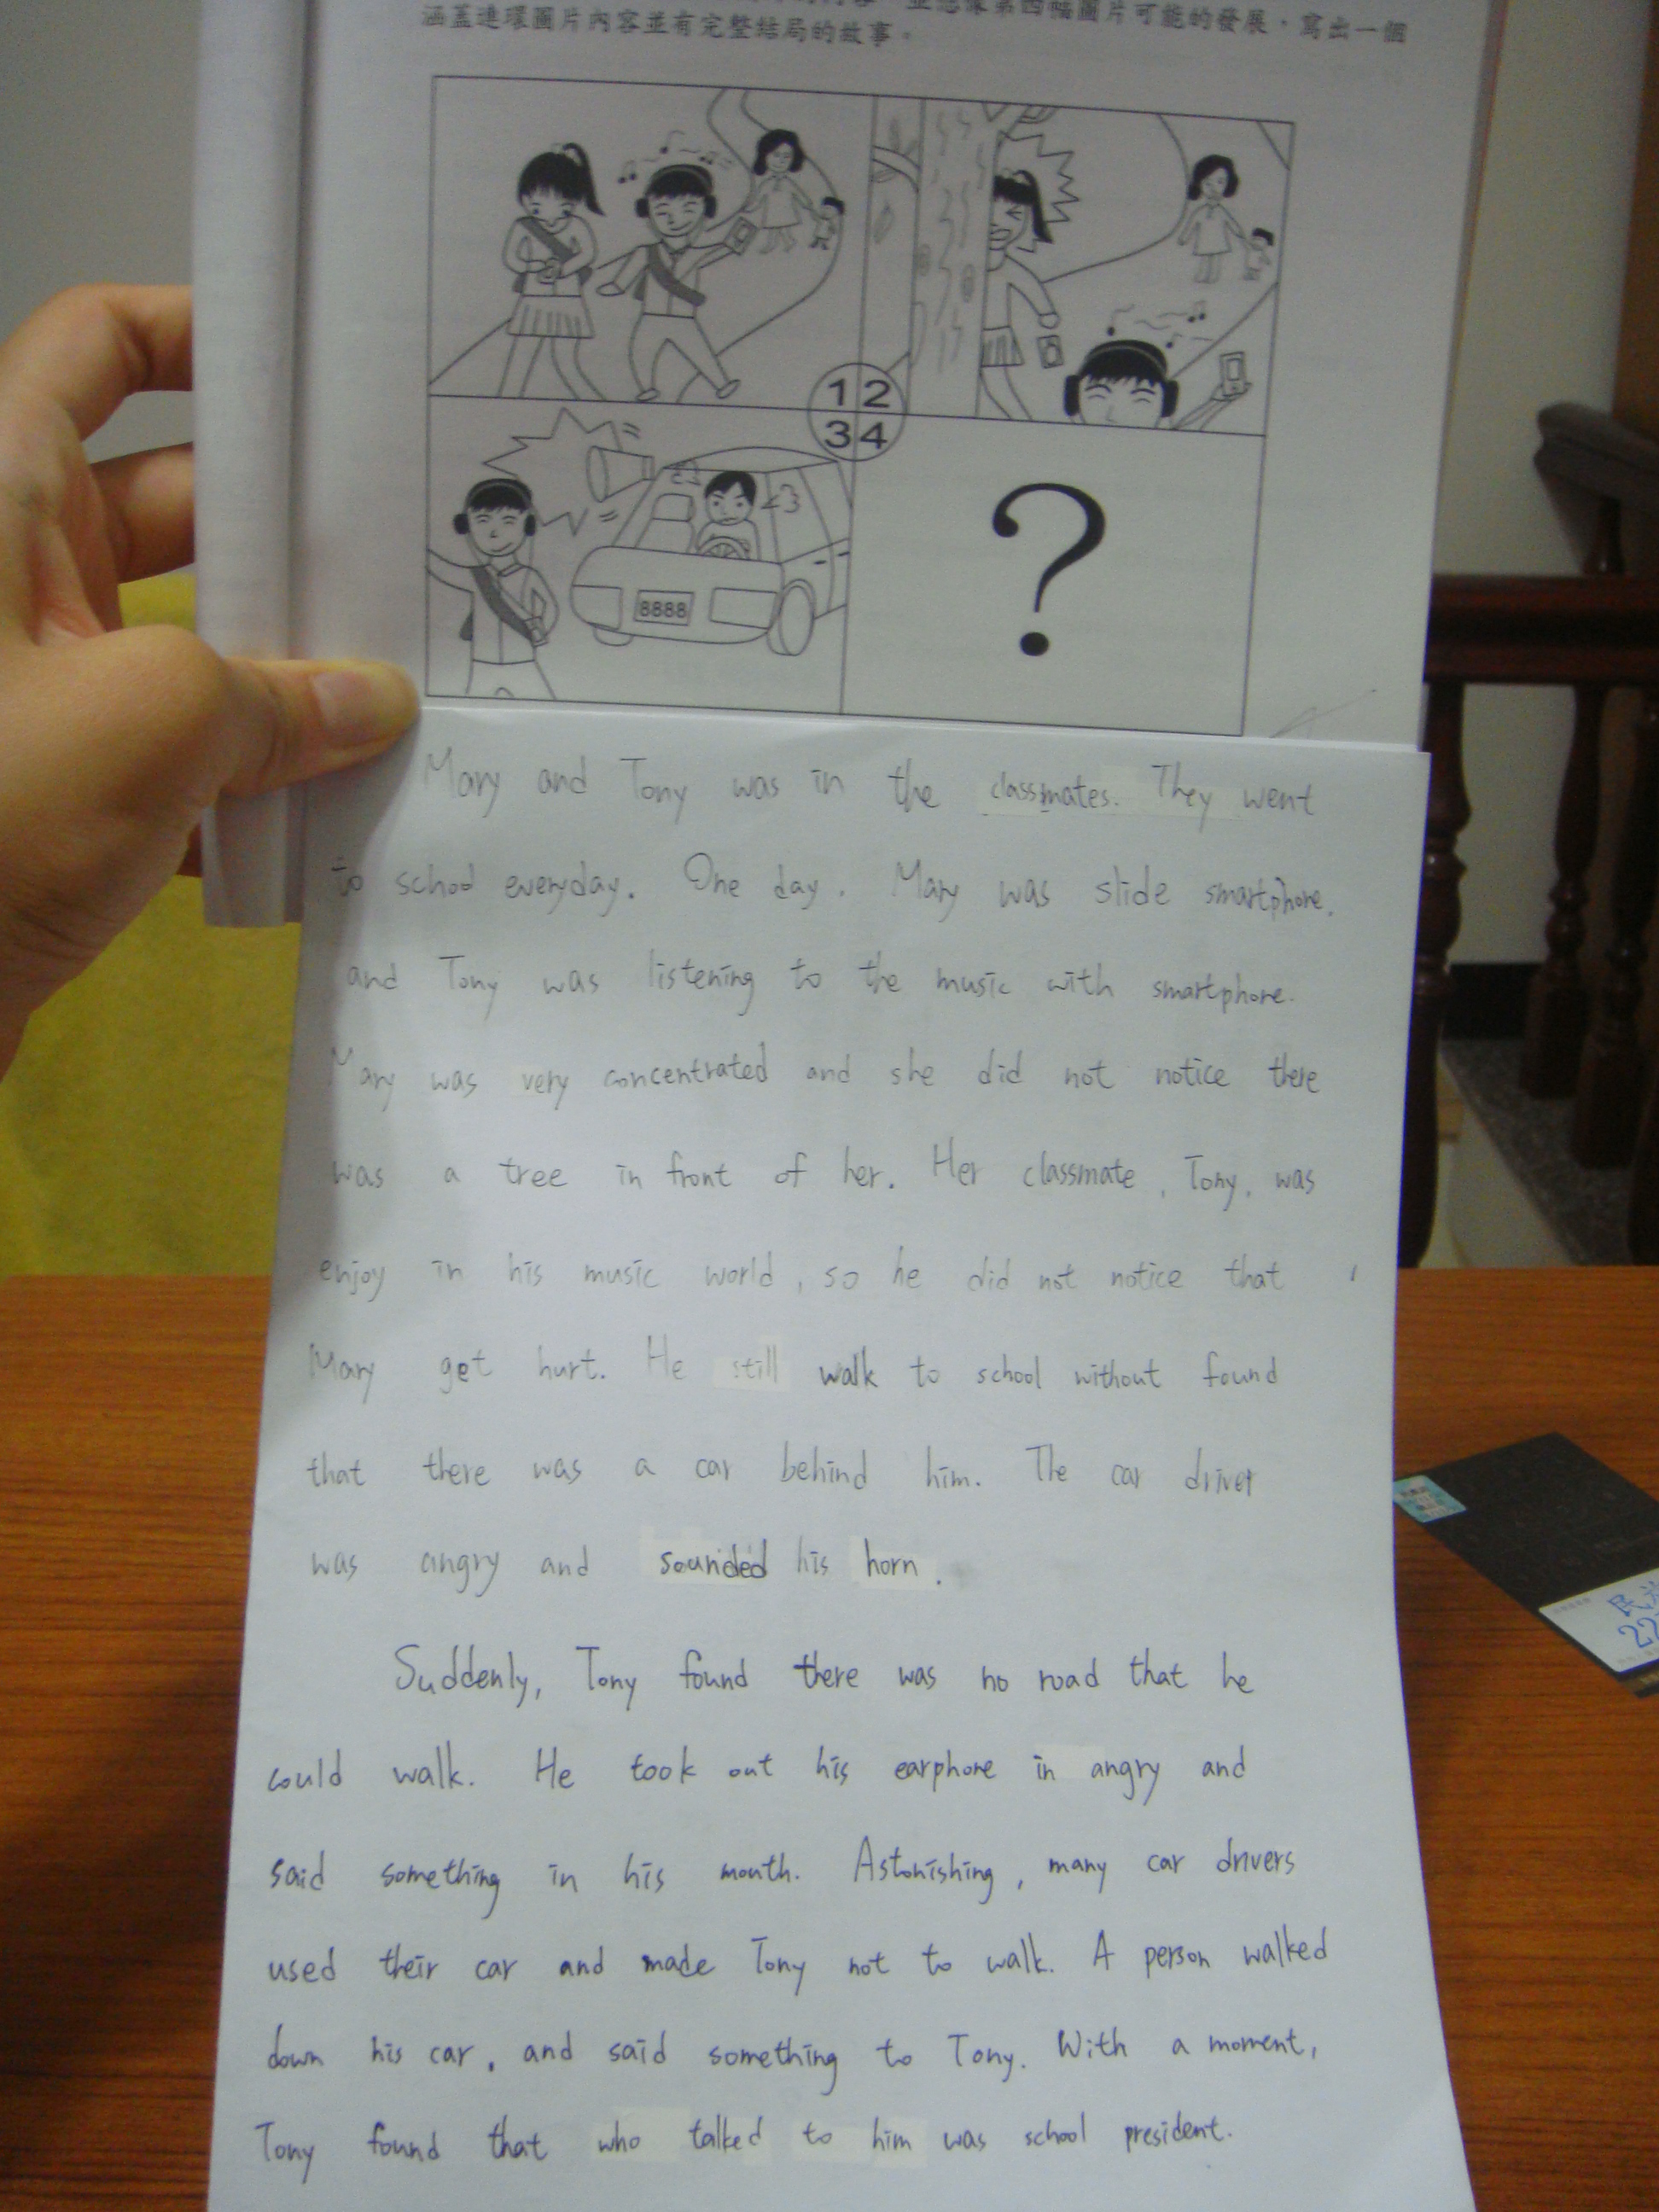 涵蓋連環圖片內容並有完整結局的故事。
1 2
3 4
8888
?
Mary and Tony was in the classmates. They went
to school everyday. One day, Mary was slide smartphone,
and Tony was listening to the music with smartphone.
Mary was very concentrated and she did not notice there
was a tree in front of her. Her classmate, Tony, was
enjoy in his music world, so he did not notice that
Mary get hurt. He still walk to school without found
that there was a car behind him. The car driver
was angry and sounded his horn.
Suddenly, Tony found there was no road that he
could walk. He took out his earphone in angry and
said something in his mouth. Astonishing, many car drivers
used their car and made Tony not to walk. A person walked
down his car, and said something to Tony. With a moment,
Tony found that who talked to him was school president.